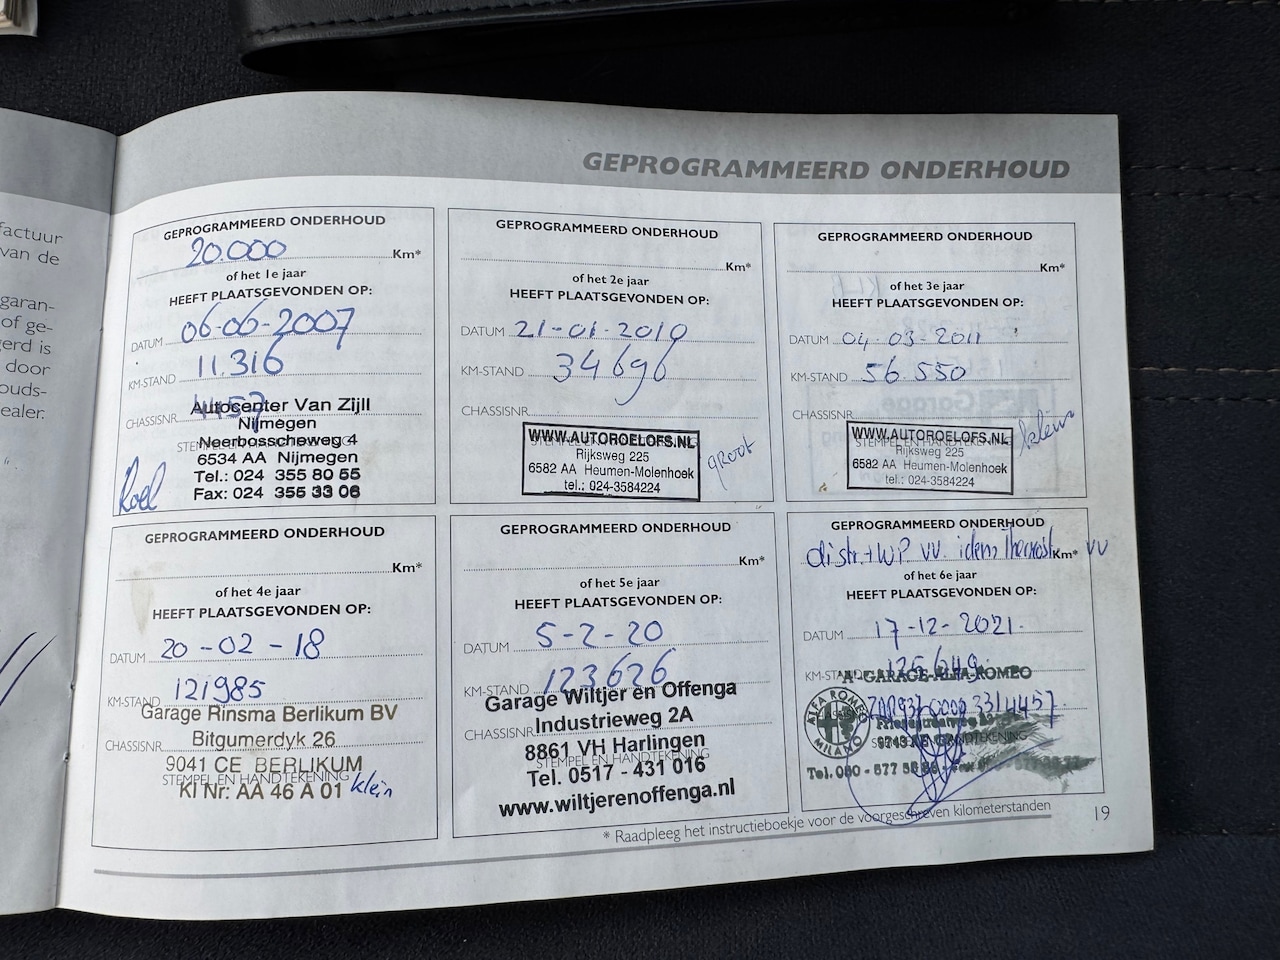 factuur
van de
garan-
of ge-
gerd is
door
ouds-
ealer.
GEPROGRAMMEERD ONDERHOUD
GEPROGRAMMEERD ONDERHOUD
20.000 Km*
of het 1e jaar
HEEFT PLAATSGEVONDEN OP:
DATUM 06-06-2007
KM-STAND 11.316
CHASSISNR. 4457
STEMPEL EN HANDTEKENING
Autocenter Van Zijll
Nijmegen
Neerbosscheweg 4
6534 AA Nijmegen
Tel.: 024 355 80 55
Fax: 024 355 33 06
Roel
GEPROGRAMMEERD ONDERHOUD
Km*
of het 2e jaar
HEEFT PLAATSGEVONDEN OP:
DATUM 21-01-2010
KM-STAND 34696
CHASSISNR.
STEMPEL EN HANDTEKENING
WWW.AUTOROELOFS.NL
Rijksweg 225
6582 AA Heumen-Molenhoek
tel.: 024-3584224
groot
GEPROGRAMMEERD ONDERHOUD
Km*
of het 3e jaar
HEEFT PLAATSGEVONDEN OP:
DATUM 04-03-2011
KM-STAND 56.550
CHASSISNR.
STEMPEL EN HANDTEKENING
WWW.AUTOROELOFS.NL
Rijksweg 225
6582 AA Heumen-Molenhoek
tel.: 024-3584224
klein
GEPROGRAMMEERD ONDERHOUD
Km*
of het 4e jaar
HEEFT PLAATSGEVONDEN OP:
DATUM 20-02-18
KM-STAND 121985
Garage Rinsma Berlikum BV
Bitgumerdyk 26
CHASSISNR.
9041 CE BERLIKUM
STEMPEL EN HANDTEKENING
KI Nr: AA 46 A 01 klein
GEPROGRAMMEERD ONDERHOUD
Km*
of het 5e jaar
HEEFT PLAATSGEVONDEN OP:
DATUM 5-2-20
KM-STAND 123626
Garage Wiltjer en Offenga
Industrieweg 2A
CHASSISNR.
8861 VH Harlingen
STEMPEL EN HANDTEKENING
Tel. 0517 - 431 016
www.wiltjerenoffenga.nl
GEPROGRAMMEERD ONDERHOUD
distr.+WP vv. idem Thermost vv
Km*
of het 6e jaar
HEEFT PLAATSGEVONDEN OP:
DATUM 17-12-2021.
KM-STAND
GARAGE-ALFA-ROMEO
ALFA ROMEO
MILANO
* Raadpleeg het instructieboekje voor de voorgeschreven kilometerstanden
19